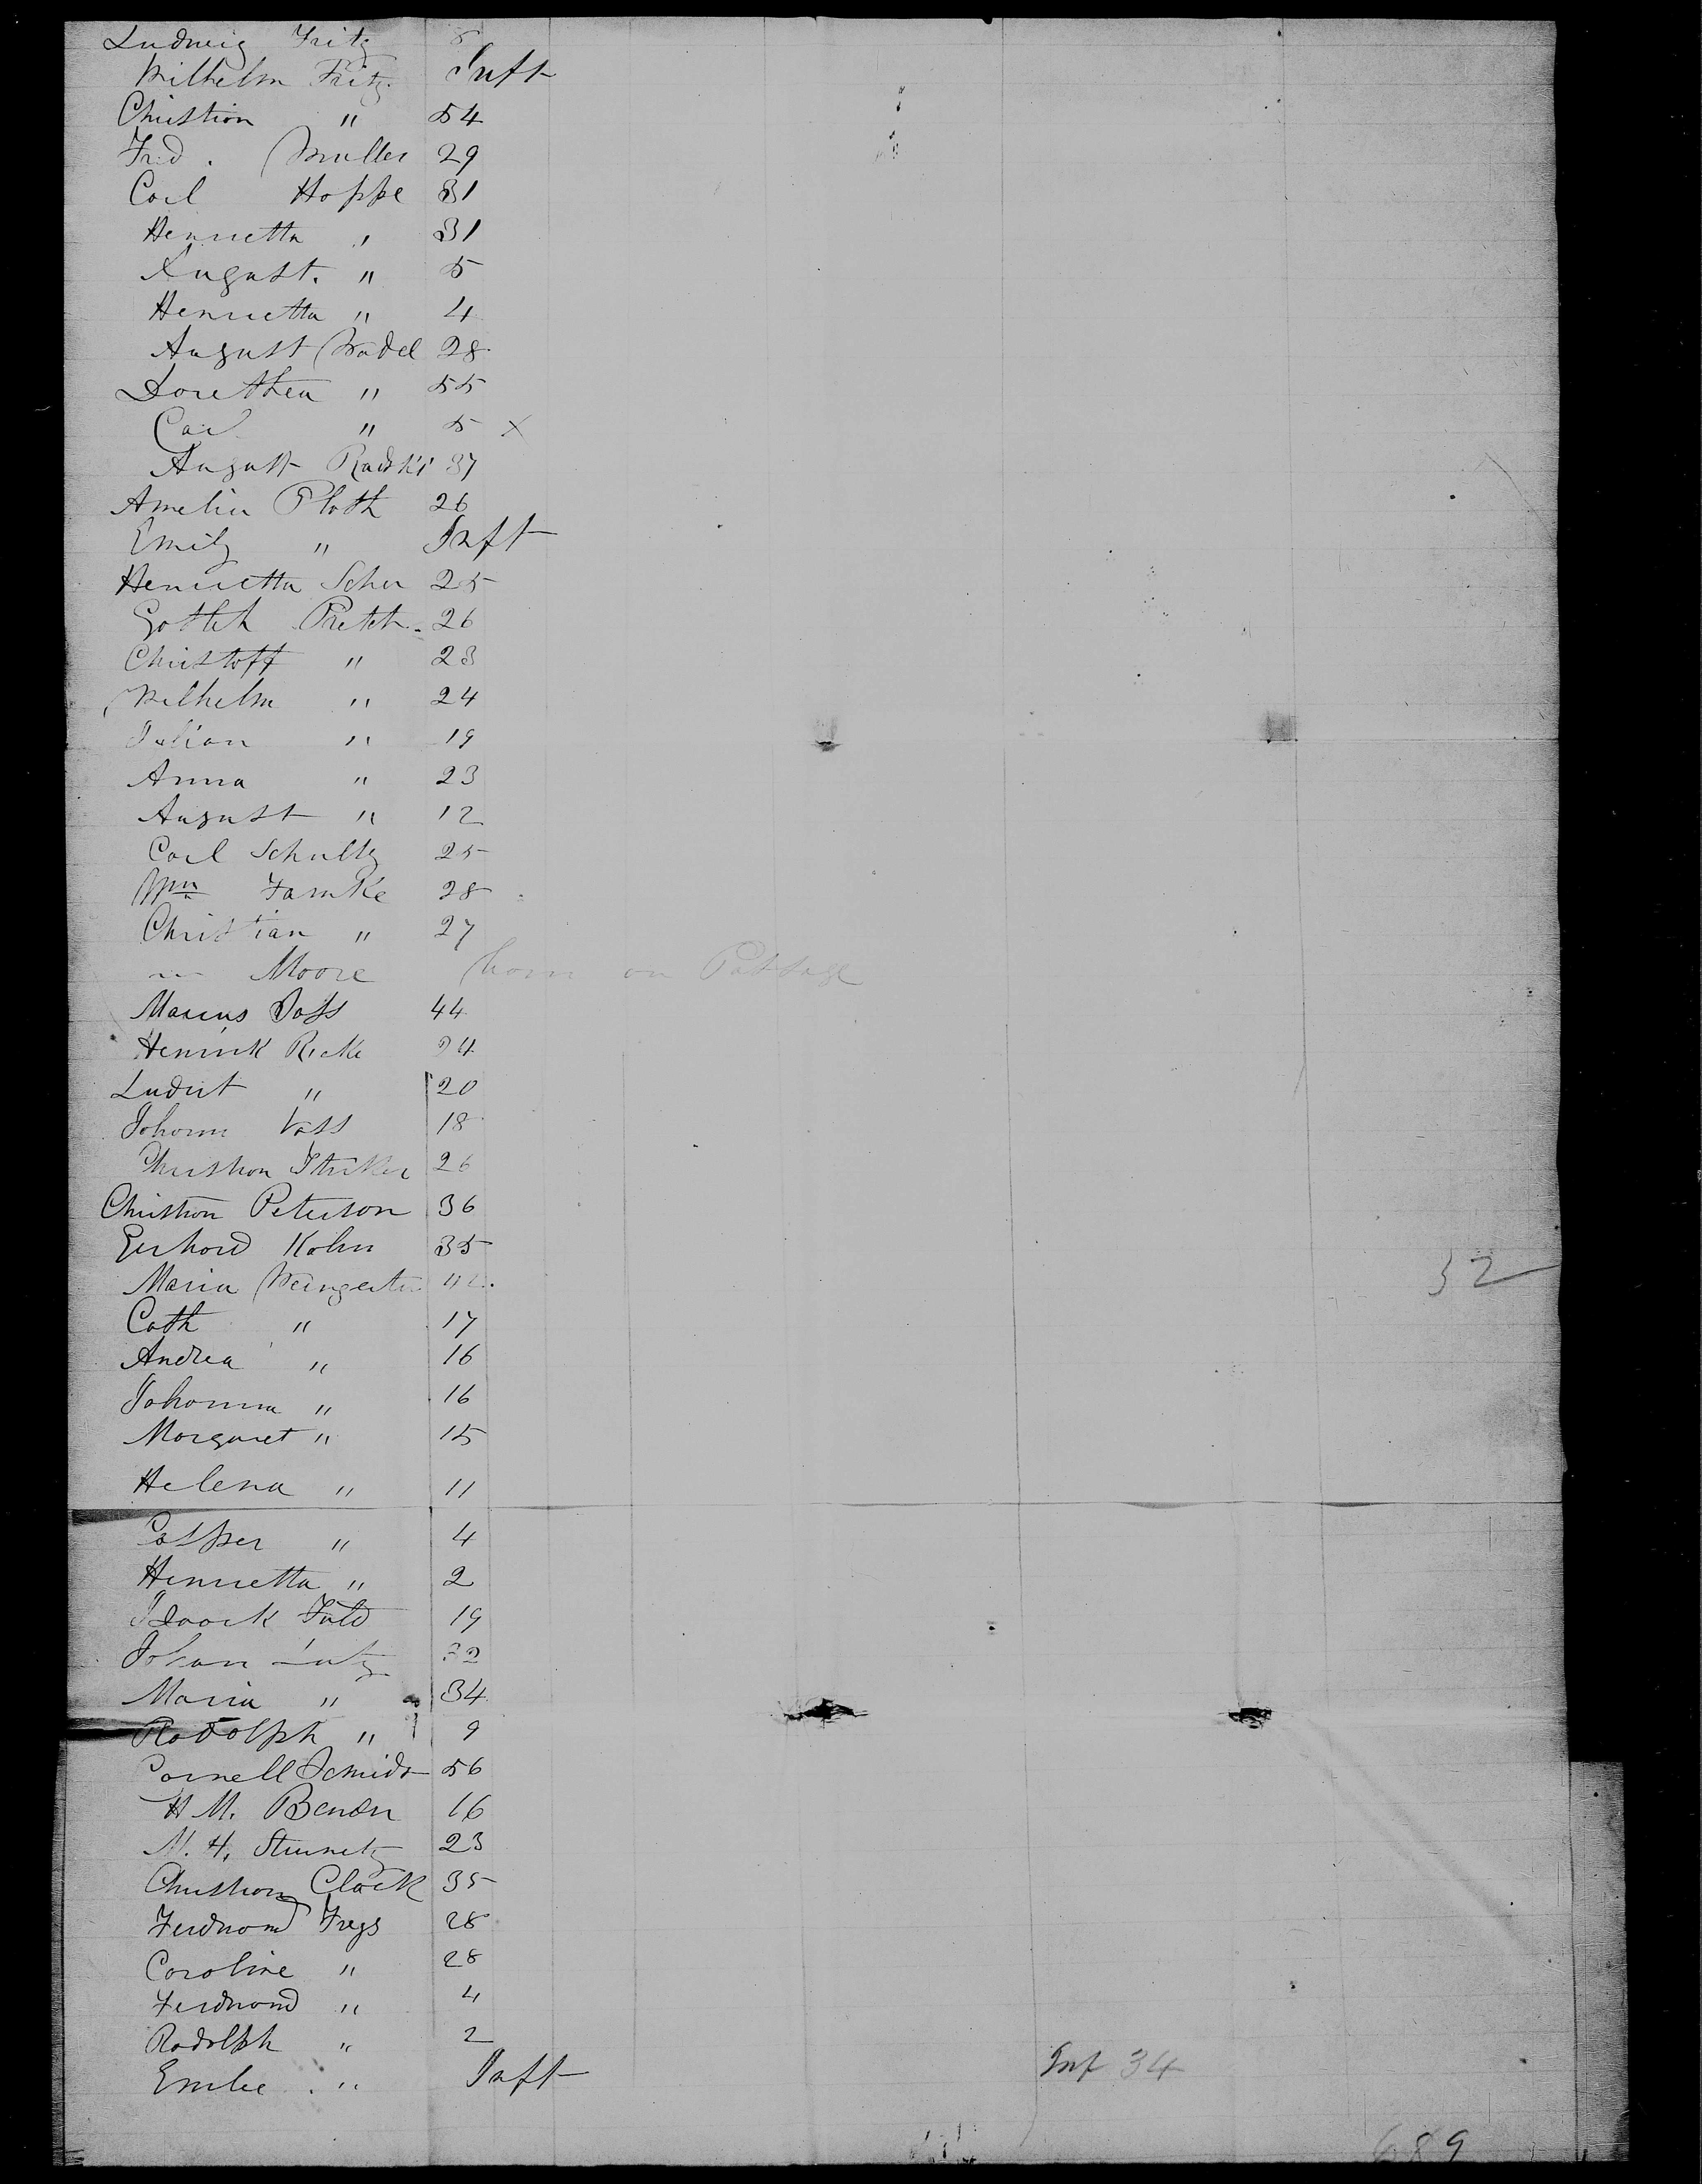 Ludwig Fritz 8
Wilhelm Fritz Inft
Christian " 54
Frid. Muller 29
Carl Hoppe 31
Henrietta " 31
August. " 5
Henrietta " 4
August Wadel 28
Dorethea " 55
Carl " 5 X
August Radski 37
Amelia Ploth 26
Emily " Inft
Henrietta Scher 25
Gottleh Preth 26
Christoff " 23
Wilhelm " 24
Julian " 19
Anna " 23
August " 12
Carl Schultz 25
Wm Famke 28
Christian " 27
Moore born on Passage
Marcus Voss 44
Henrick Ricke 24
Ludert " 20
Johann Voss 18
Christian Striker 26
Christian Peterson 36
Gerhard Kohn 35
Maria 42
32
Cath " 17
Andrea " 16
Johanna " 16
Margaret " 15
Helena " 11
Casper " 4
Henrietta " 2
Fuld 19
Johann 32
Maria " 34
Rodolph " 9
Cornell Schmidt 56
H M. Benden 16
M. H. Steinetz 23
Christian Clack 35
Ferdnand Fregs 28
Caroline " 28
Ferdnand " 4
Rodolph " 2
Emilie " Inft
Inf 34
689